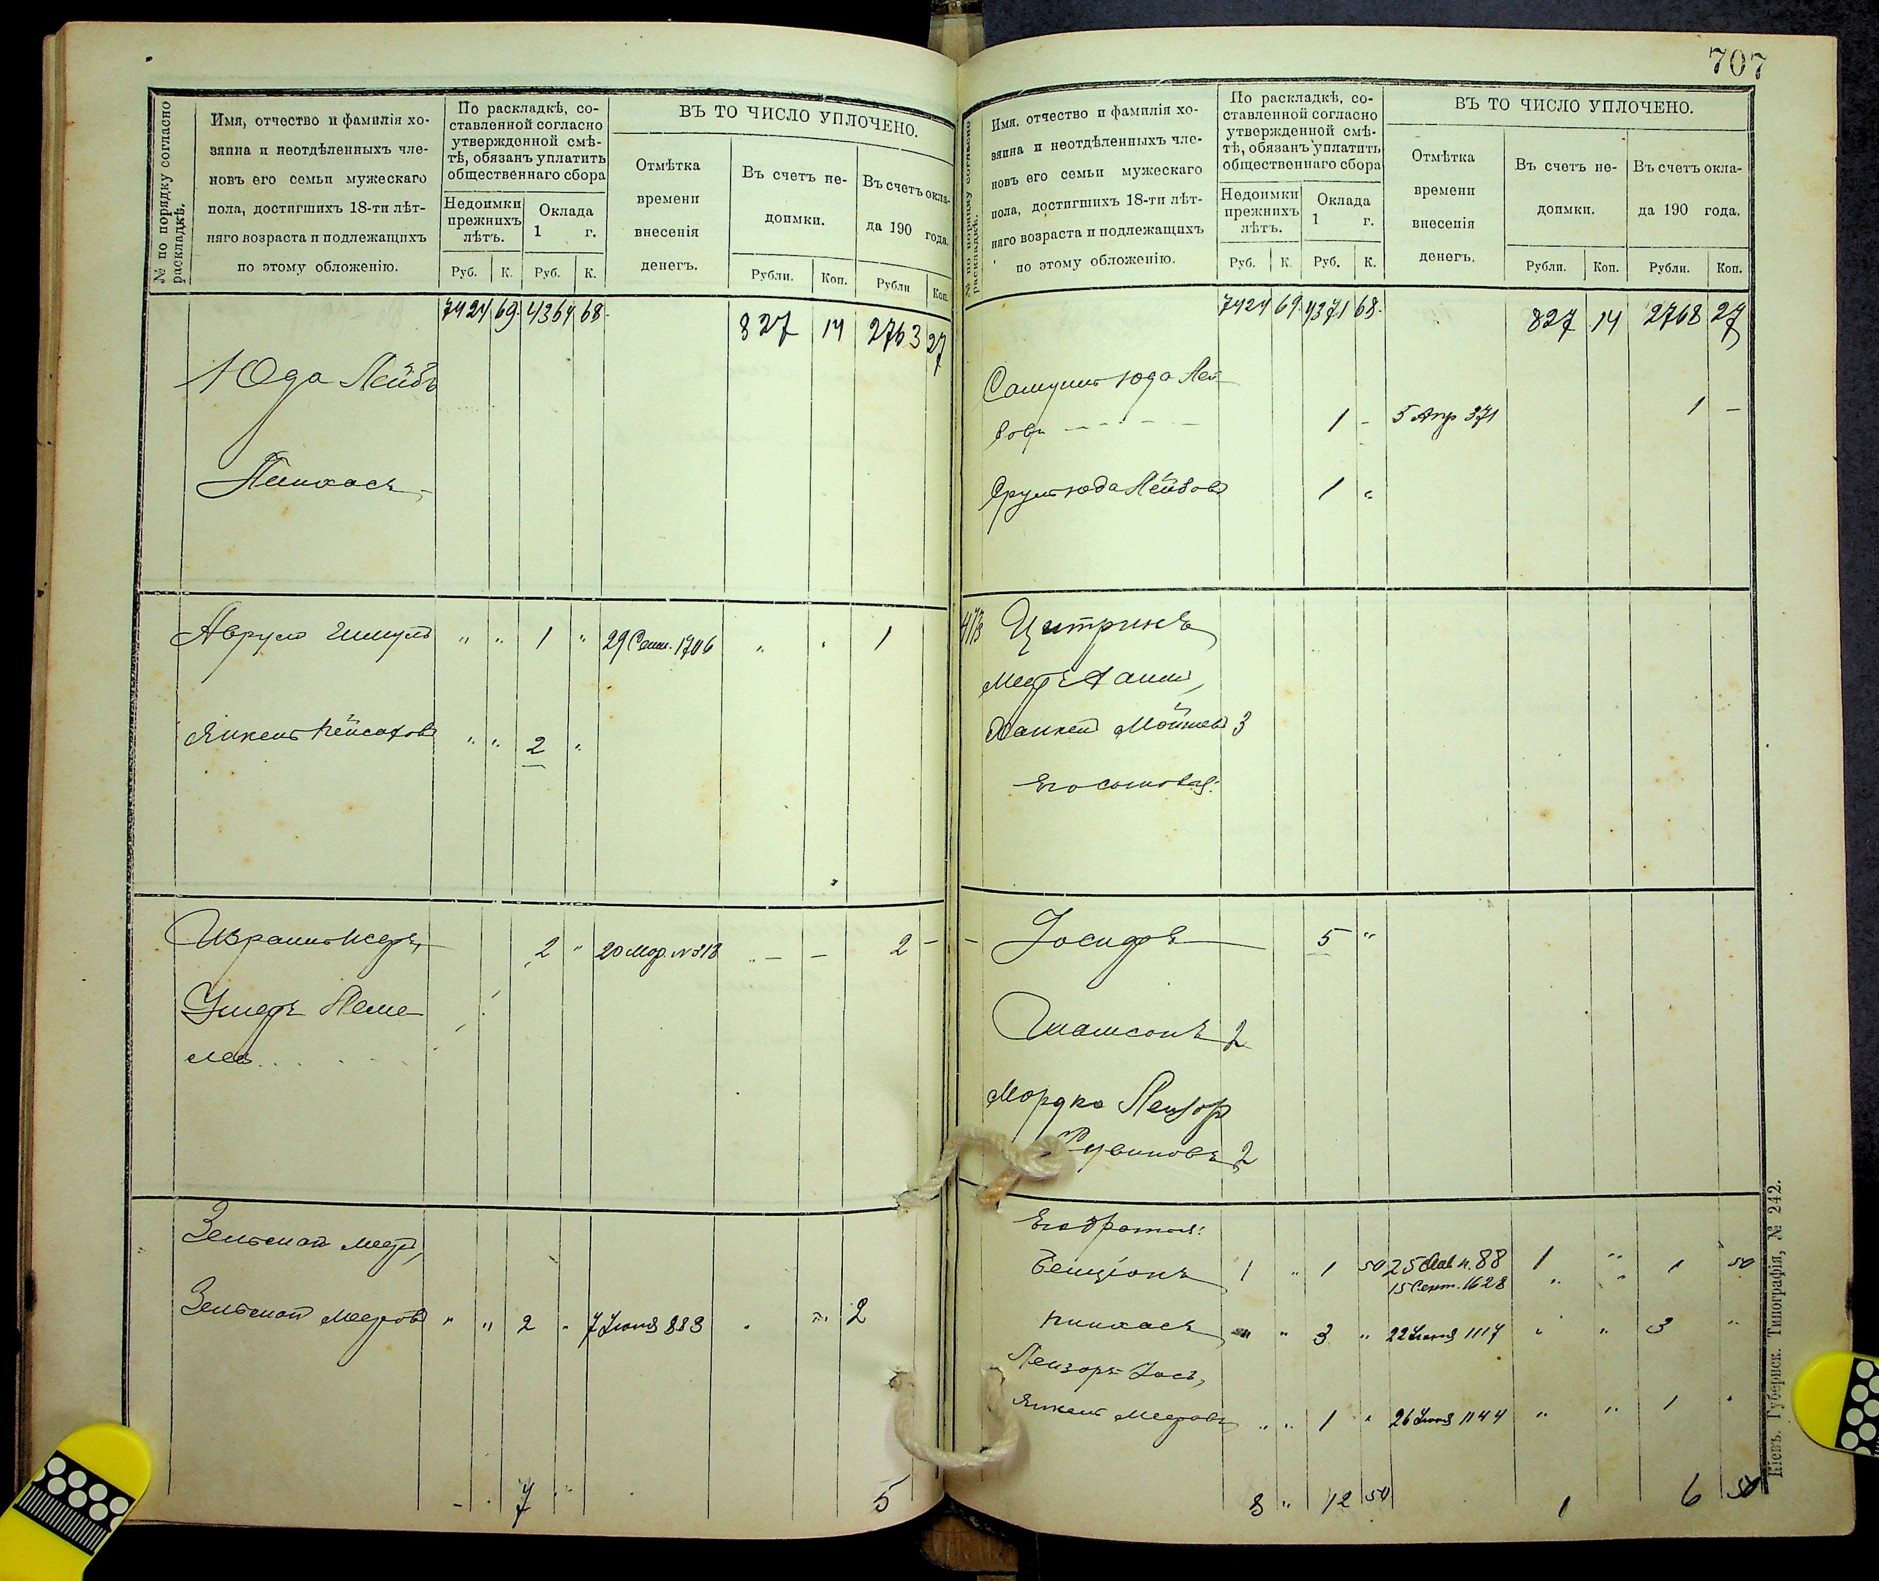 № по порядку согласно раскладкѣ.
Имя, отчество и фамилія хо-
зяина и неотдѣленныхъ чле-
новъ его семьи мужескаго
пола, достигшихъ 18-ти лѣт-
няго возраста и подлежащихъ
по этому обложенію.
По раскладкѣ, со-
ставленной согласно
утвержденной смѣ-
тѣ, обязанъ уплатить
общественнаго сбора
Недоимки
прежнихъ
лѣтъ.
Оклада
1 г.
Руб. К. Руб. К.
ВЪ ТО ЧИСЛО УПЛОЧЕНО.
Отмѣтка
времени
внесенія
денегъ.
Въ счетъ не-
доимки.
Въ счетъ окла-
да 190 года.
Рубли. Коп. Рубли Коп.
7424 69 4364 68 827 14 2763 27
Юда Лейбъ
Пинхасъ
Аврумъ Шмулъ " " 1 " 29 Сент. 1706 " " 1
Янкель Пейсаховъ " " 2 "
Израиль 2 " 20 Мар. № 313 — — 2 —
Ушеръ
Зельманъ Меер,
Зельманъ Мееровъ " " 2 " 7 Іюня 883 " " 2
7 5
707
№ по порядку согласно раскладкѣ.
Имя, отчество и фамилія хо-
зяина и неотдѣленныхъ чле-
новъ его семьи мужескаго
пола, достигшихъ 18-ти лѣт-
няго возраста и подлежащихъ
по этому обложенію.
По раскладкѣ, со-
ставленной согласно
утвержденной смѣ-
тѣ, обязанъ уплатить
общественнаго сбора
Недоимки
прежнихъ
лѣтъ.
Оклада
1 г.
Руб. К. Руб. К.
ВЪ ТО ЧИСЛО УПЛОЧЕНО.
Отмѣтка
времени
внесенія
денегъ.
Въ счетъ не-
доимки.
Въ счетъ окла-
да 190 года.
Рубли. Коп. Рубли. Коп.
7424 69 4371 68 827 14 2768 27
Самуилъ Юда Лей
бовъ 1 - 5 Апр 371 1 —
Срулъ Юда Лейбовъ 1 "
473 Цитринъ
Меер
Хаикель Мойшевъ 3
Его сыновья:
Іосифъ 5 "
Шамсонъ 2
Мордко Лейзор
Рувиновъ 2
Его братья:
Бенціонъ 1 " 1 50 25 88 1 " 1 50
15 Сент. 1628 " "
Пинхасъ " 3 " 22 Іюня 1117 " " 3 "
Лейзоръ Іось,
Янкель Мееровъ " " 1 " 26 Іюня 1144 " " 1 "
8 " 12 50 1 6 50
Кіевъ. Губернск. Типографія, № 242.